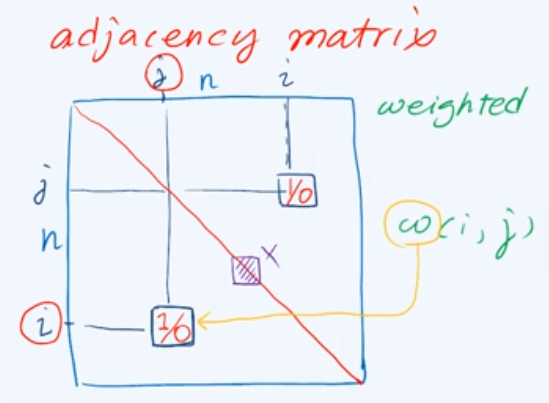 adjacency matrix
j n i
weighted
j 1/0
n ω(i, j)
x
i 1/0